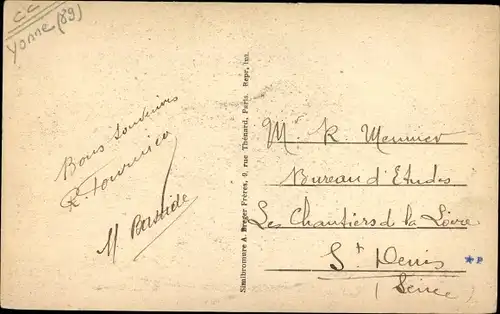 CC
Yonne (89)
Bons Souvenirs
R. Fournier
M Bastide
Similibromure A. Breger Frères, 9, rue Thénard, Paris. Repr. int.
M. R. Meunier
Bureau d'Etudes
Les Chantiers de la Loire
St Denis
(Seine)
*P